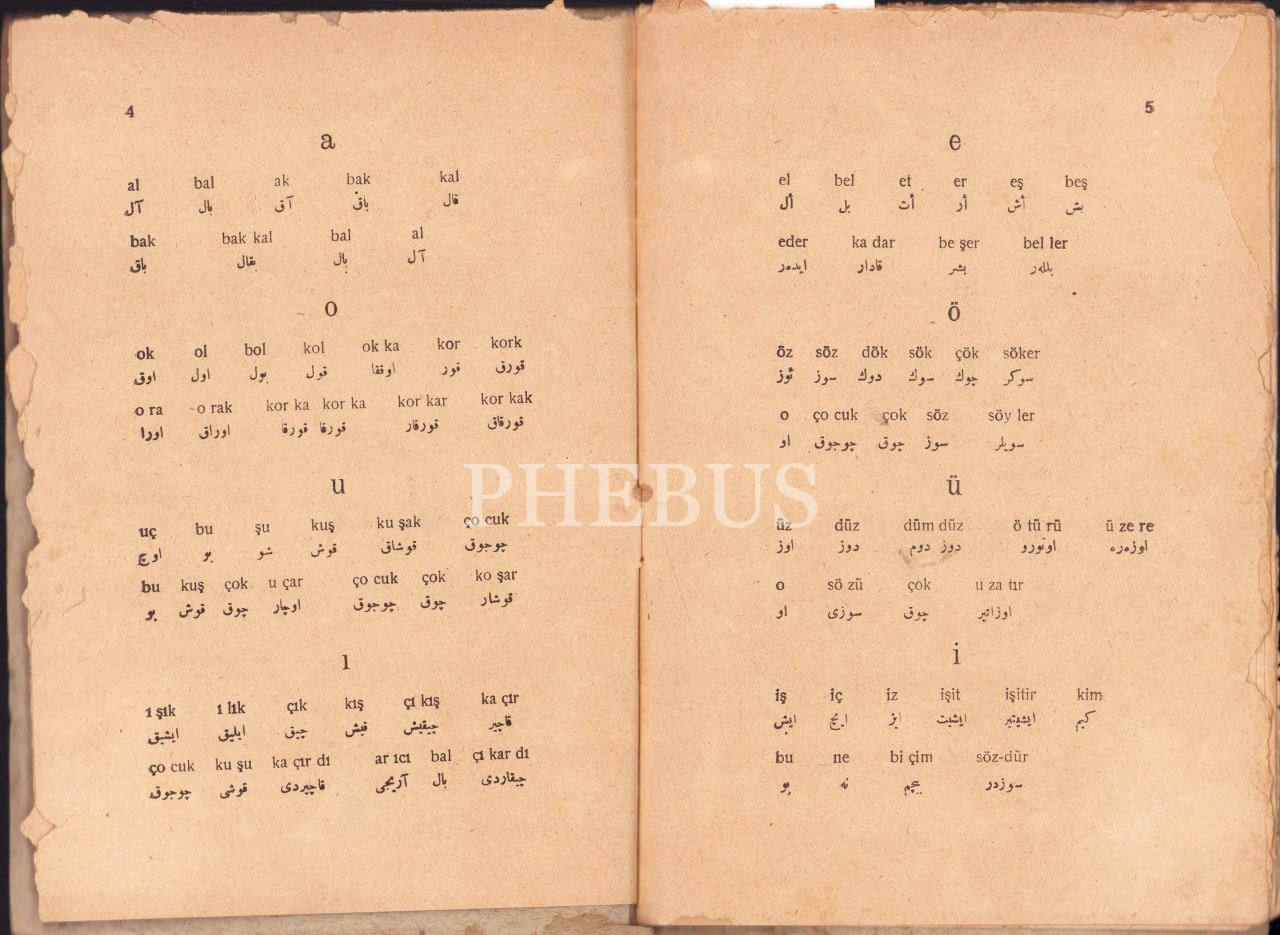 4
a
al bal ak bak kal
آل بال آق باق قال
bak bak kal bal al
باق بقال بال آل
o
ok ol bol kol ok ka kor kork
اوق اول بول قول اوققا قور قورق
o ra o rak kor ka kor ka kor kar kor kak
اورا اوراق قورقا قورقا قورقار قورقاق
u
uç bu şu kuş ku şak ço cuk
اوچ بو شو قوش قوشاق چوجوق
bu kuş çok u çar ço cuk çok ko şar
بو قوش چوق اوچار چوجوق چوق قوشار
ı
ı şık ı lık çık kış çı kış ka çır
ایشیق ایلیق چیق قیش چیقیش قاچیر
ço cuk ku şu ka çır dı ar ıcı bal çı kar dı
چوجوق قوشی قاچیردی آریجی بال چیقاردی
5
e
el bel et er eş beş
أل بل أت أر أش بش
eder ka dar be şer bel ler
ایدەر قادار بشر بللەر
ö
öz söz dök sök çök söker
ئوز سوز دوك سوك چوك سوكر
o ço cuk çok söz söy ler
او چوجوق چوق سوز سویلر
ü
üz düz düm düz ö tü rü ü ze re
اوز دوز دوم دوز اوتورو اوزەرە
o sö zü çok u za tır
او سوزی چوق اوزاتیر
i
iş iç iz işit işitir kim
ایش ایچ ایز ایشیت ایشیتیر کیم
bu ne bi çim söz-dür
بو نه بیچم سوزدر
PHEBUS